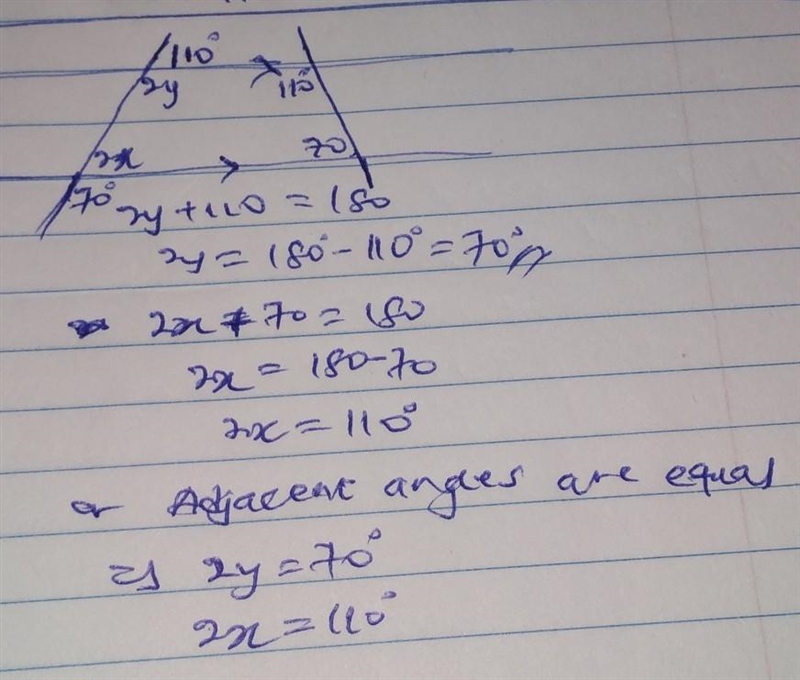 110°
2y 110°
2x 70
70° 2y + 110 = 180
2y = 180° - 110° = 70°
2x + 70 = 180
2x = 180-70
2x = 110°
or Adjacent angles are equal
⇒ 2y = 70°
2x = 110°